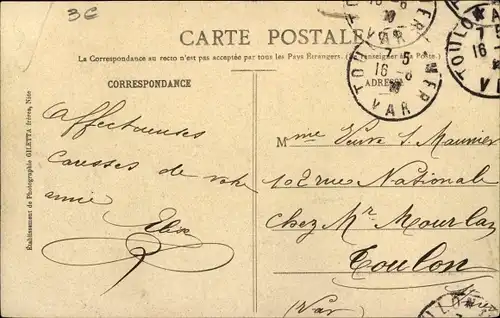 3€
CARTE POSTALE
La Correspondance au recto n'est pas acceptée par tous les Pays Étrangers. (Se renseigner à la Poste.)
CORRESPONDANCE
ADRESSE
TOULON VAR
7 5
16-8
VAR
Affectueuses
caresses de votre
amie
Elisa
Mme Veuve S. Maunier
10 Rue Nationale
Chez Mr. Mourlaz
Toulon
(Var)
Établissement de Photographie GILETTA frères, Nice